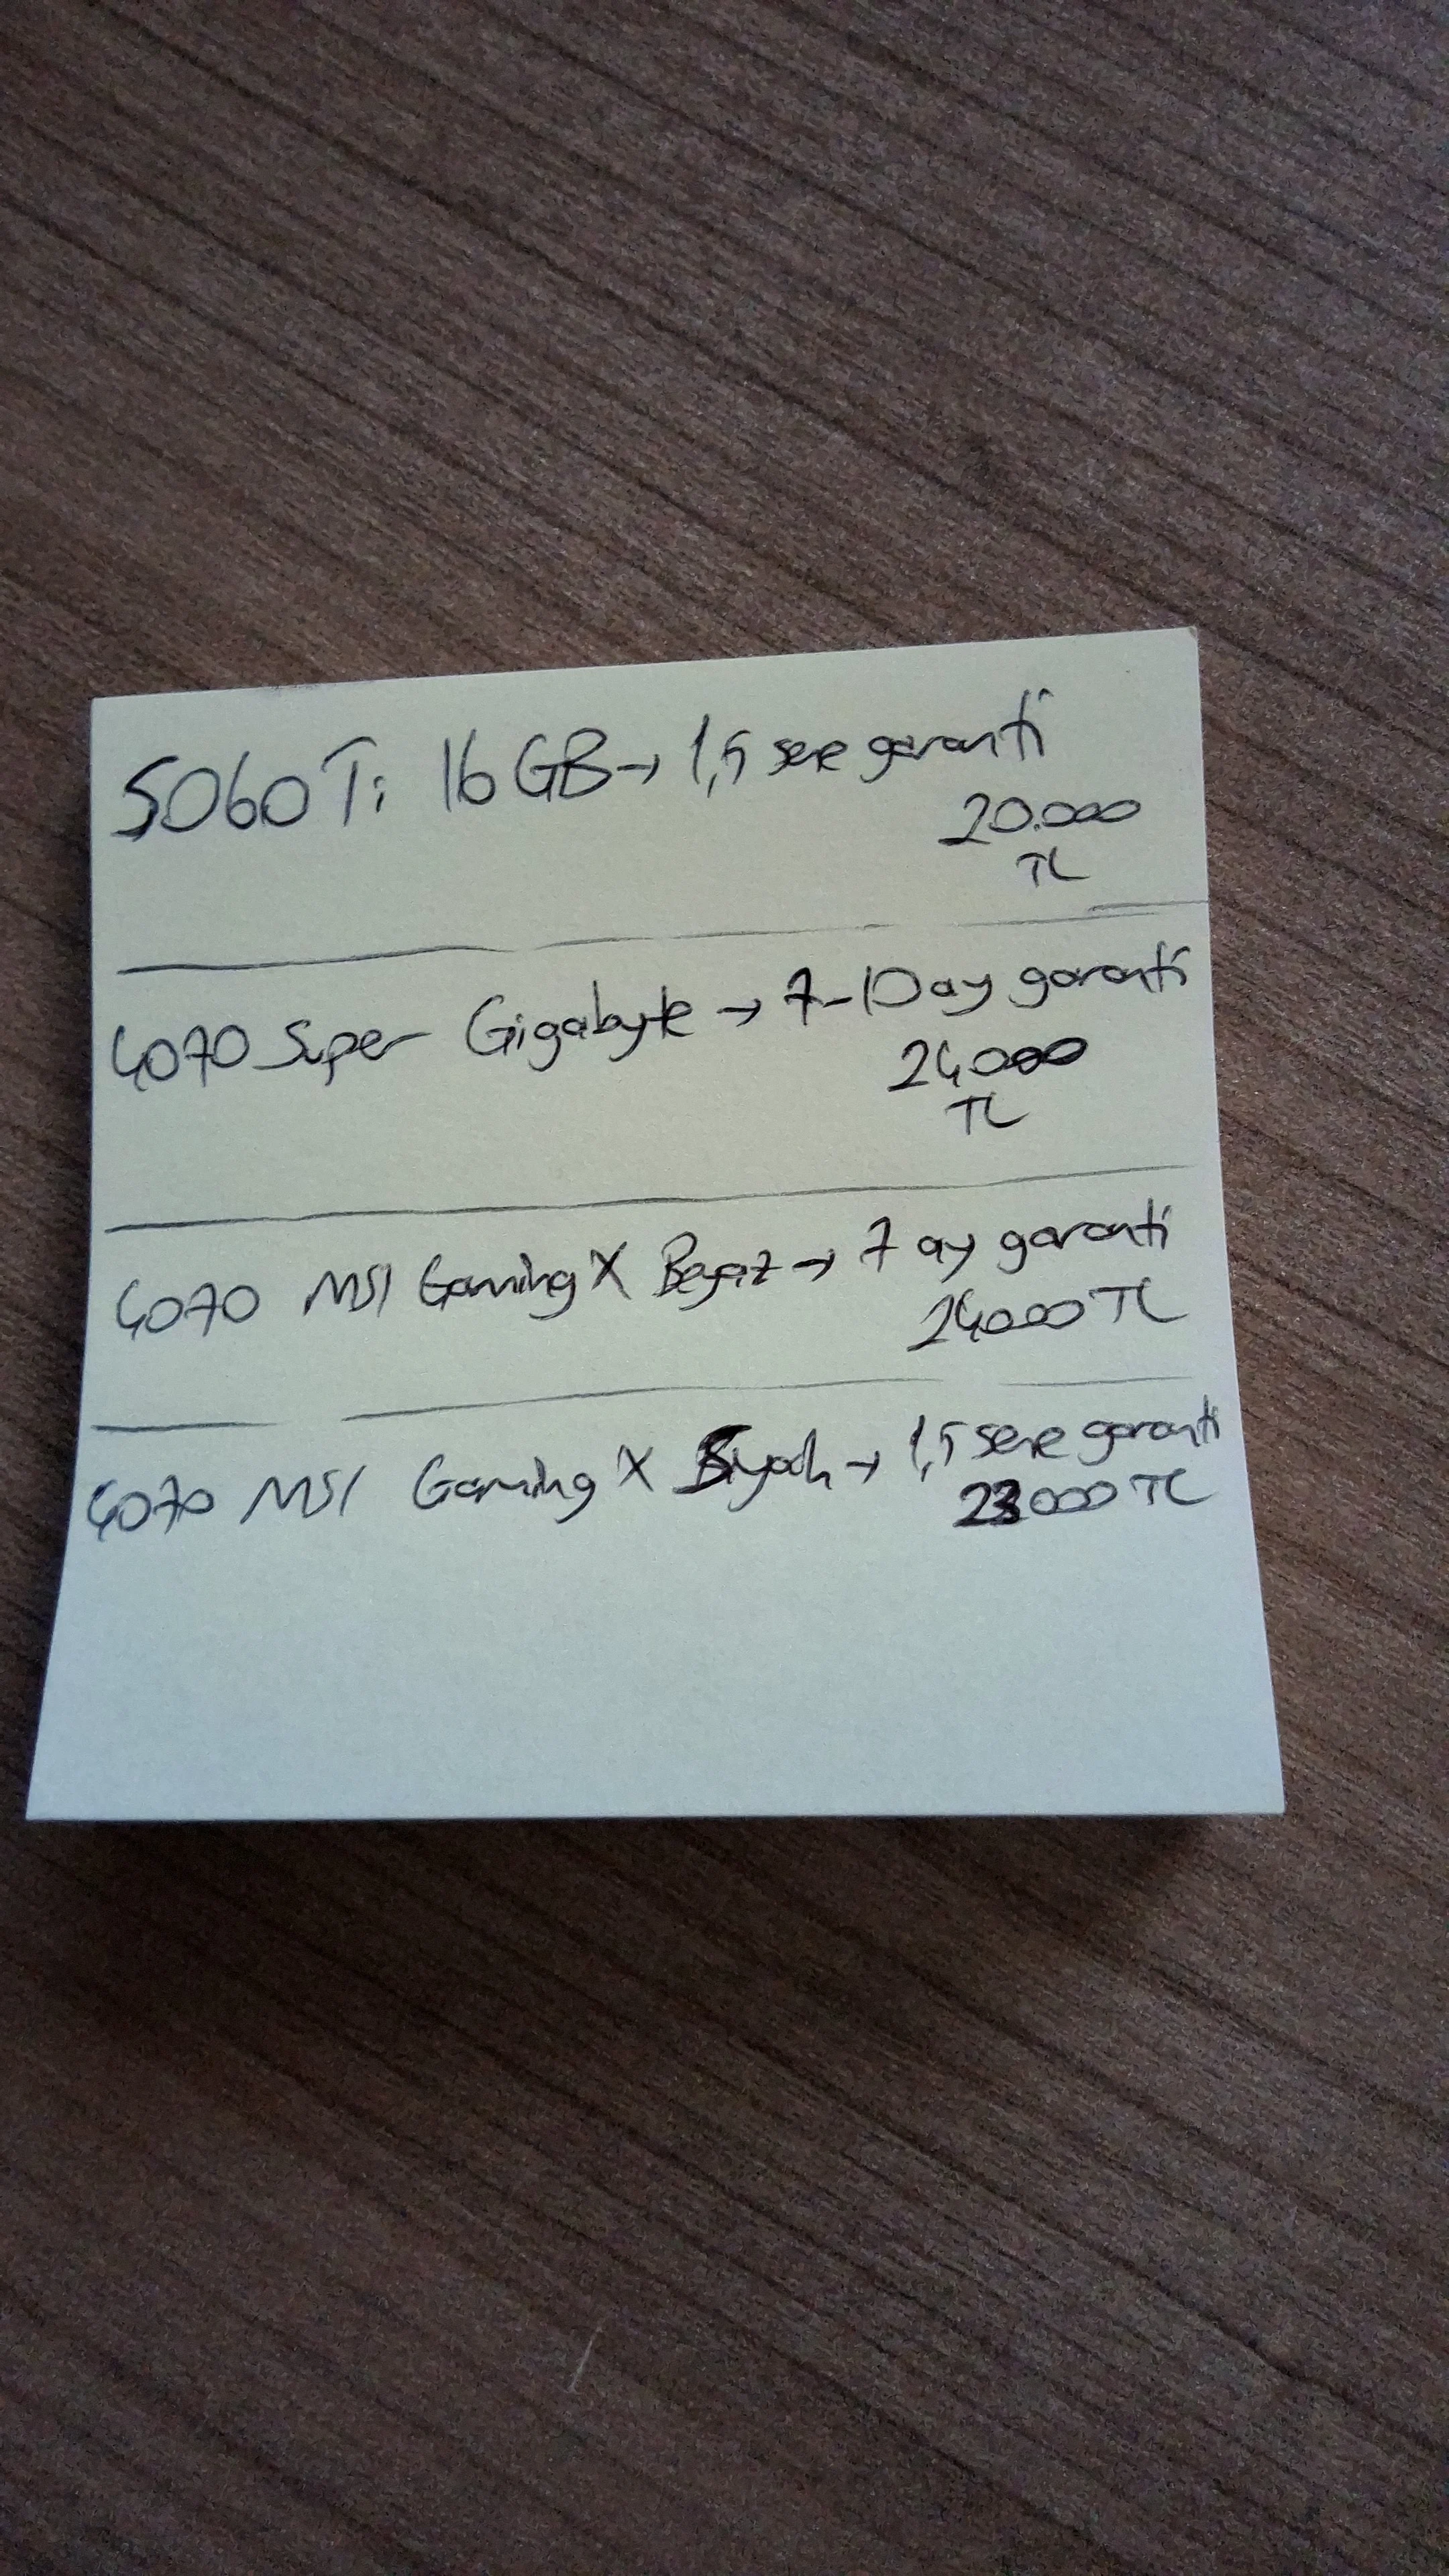 5060 Ti 16 GB → 1,5 sene garanti
20.000
TL
4070 Super Gigabyte → 7-10 ay garanti
24000
TL
4070 MSI Gaming X Beyaz → 7 ay garanti
24000 TL
4070 MSI Gaming X Siyah → 1,5 sene garanti
23000 TL